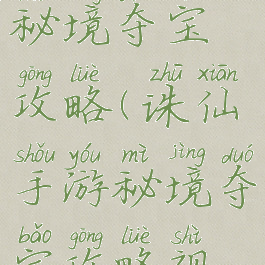 秘境夺宝
gōng lüè zhū xiān
攻略(诛仙
shǒu yóu mì jìng duó
手游秘境夺
bǎo gōng lüè shì